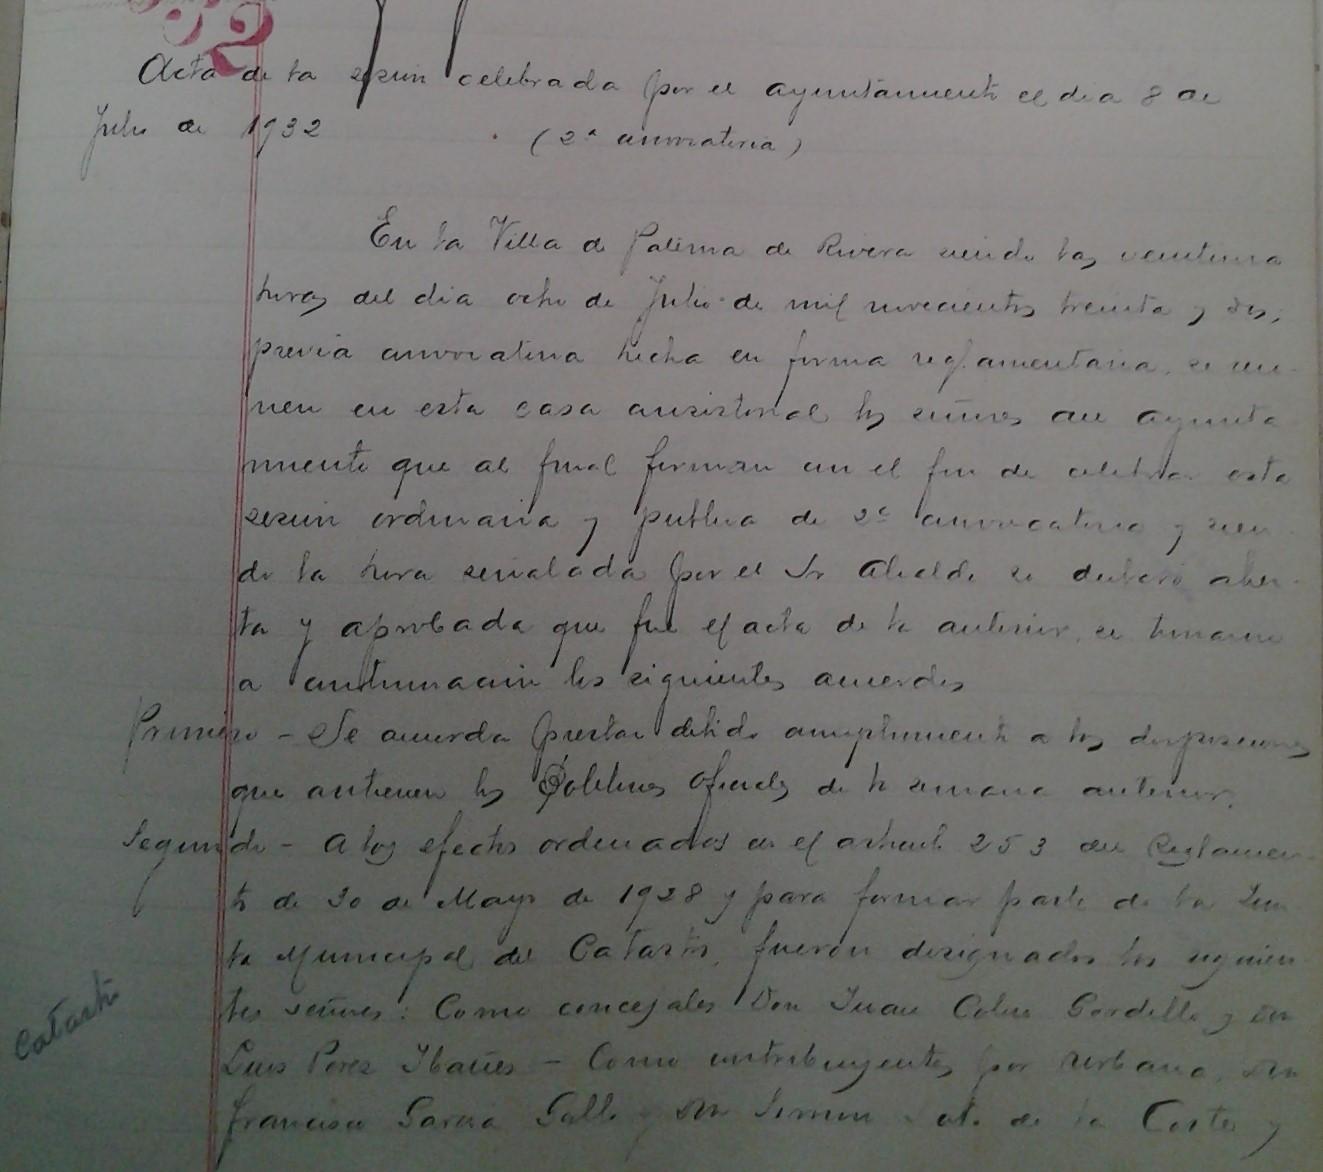 32
Acta de la sesion celebrada por el ayuntamiento el dia 8 de
Julio de 1932 (2ª convocatoria)
En la Villa de Paterna de Rivera siendo las veintiuna
horas del dia ocho de Julio de mil novecientos treinta y dos,
previa convocatoria hecha en forma reglamentaria, se reu-
nen en esta casa consistorial los señores del ayunta
miento que al final firman con el fin de celebrar esta
sesion ordinaria y publica de 2ª convocatoria y sien-
do la hora señalada por el Sr Alcalde se declaró abier-
ta y aprobada que fue el acta de la anterior, se tomaron
a continuacion los siguientes acuerdos
Primero - Se acuerda prestar debido cumplimiento a las disposiciones
que contienen los Boletines Oficiales de la semana anterior.
Segundo - A los efectos ordenados en el articulo 253 del Reglamen-
to de 30 de Mayo de 1928 y para formar parte de la Jun-
ta Municipal del Catastro, fueron designados los siguien-
tes señores: Como concejales Don Juan Gordillo y Don
Luis Perez Ibañes - Como contribuyentes por urbana, Don
Francisco Garcia Gallo y Don Simon de la Corte y
Catastro